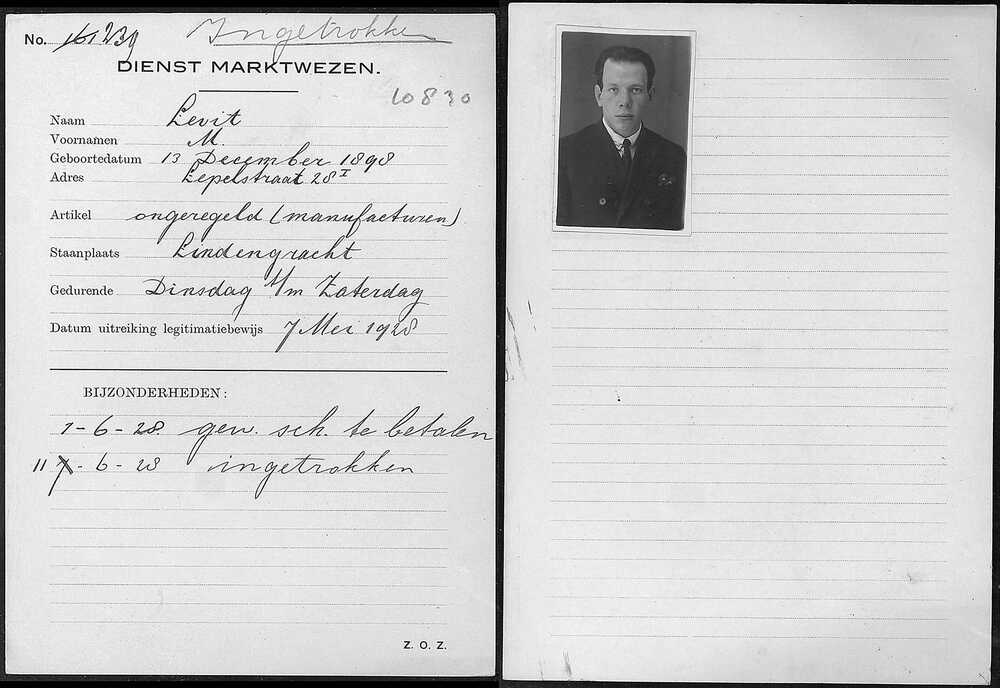 No. 161239 Ingetrokken
DIENST MARKTWEZEN.
10830
Naam Levit
Voornamen M.
Geboortedatum 13 December 1898
Adres Lepelstraat 28 I
Artikel ongeregeld (manufacturen)
Staanplaats Lindengracht
Gedurende Dinsdag t/m Zaterdag
Datum uitreiking legitimatiebewijs 7 Mei 1928
BIJZONDERHEDEN:
1-6-28. gew. sch. te betalen
11-6-28 ingetrokken
Z. O. Z.